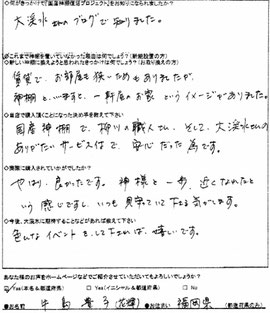 何がきっかけで「国産神棚復活プロジェクト」をお知りになられましたか?
大渓水さんのブログで知りました。
これまで神棚を置いていなかった理由は何でしょう?(新規設置の方)
新しい神棚に替えようと思われたきっかけは何でしょう?(お取り替えの方)
賃貸で、お部屋も狭いためもありましたが、
神棚といいますと、一軒家のお家というイメージがありました。
◇当店で購入頂くことになった決め手を教えて下さい
国産神棚で、柳川の職人さん、そして、大渓水さんの
ありがたいサービスなどで、安心だった為です。
◇実際に購入されていかがでしたか?
やはり、良かったです。神様と一歩、近くなれたと
いう感じですし、いつも見守っていて下さる気がします。
◇今後、大渓水に期待することなどがあれば教えて下さい
色んなイベントをして下されば、嬉しいです。
あなた様のお声をホームページなどでご紹介させていただいてもよろしいでしょうか?
Yes(本名&都道府県) □Yes(イニシャル&都道府県) □No
●お名前
●お住まい 福岡県 (都道府県のみ)